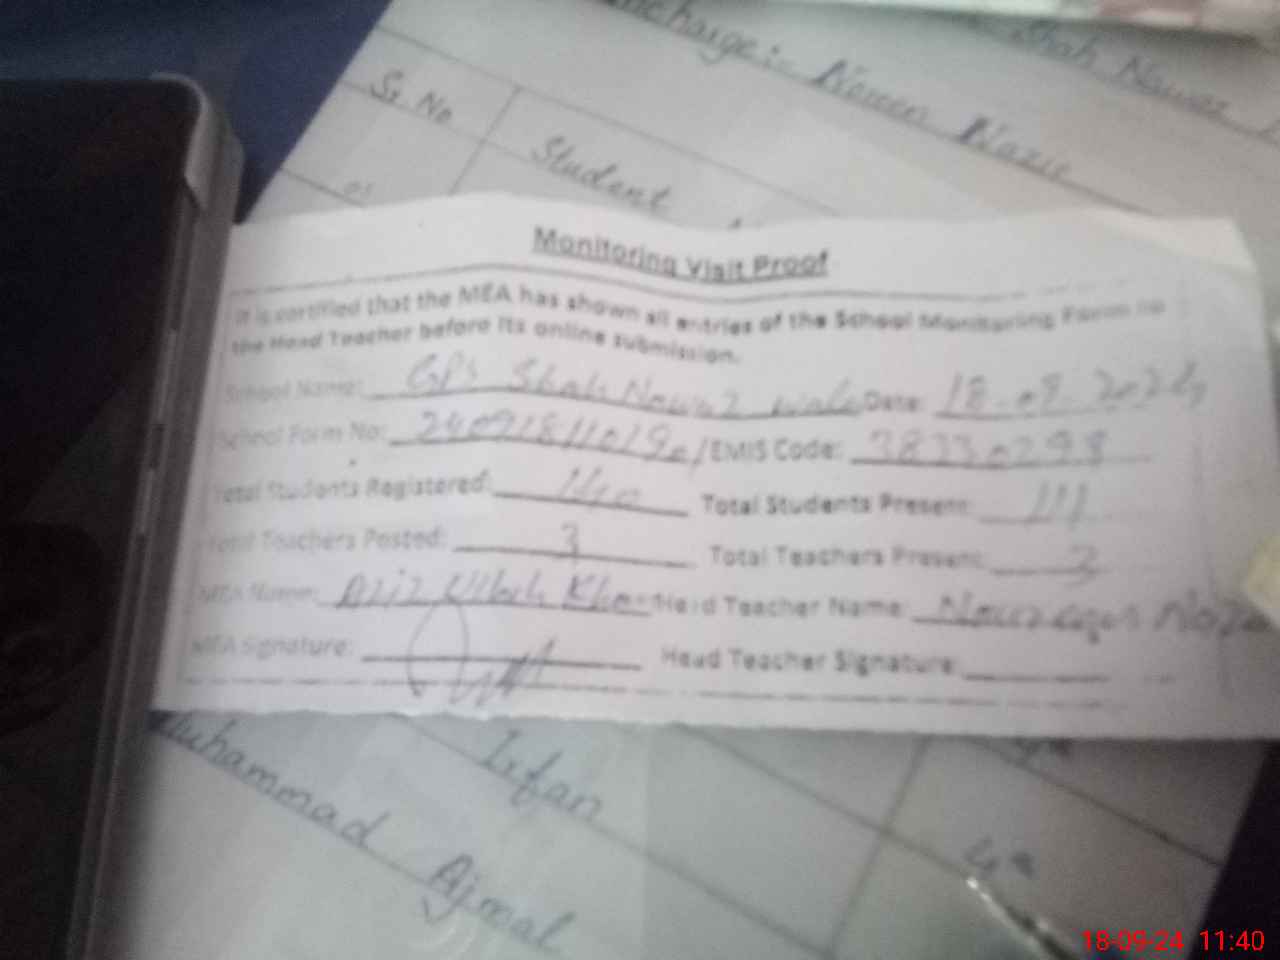 Incharge:- Noreen Nazir
Shah Nawaz
Sr. No
Student
01
Monitoring Visit Proof
It is certified that the MEA has shown all entries of the School Monitoring Form to
the Head Teacher before its online submission.
School Name: GPS Shah Nawaz wala Date: 18-09-2024
School Form No: EMIS Code: 38330298
Total Students Registered: 140 Total Students Present: 111
Total Teachers Posted: 3 Total Teachers Present: 3
MEA Name: Aziz Ullah Khan Head Teacher Name:
MEA Signature: Head Teacher Signature:
Irfan
Muhammad Ajmal
18-09-24 11:40